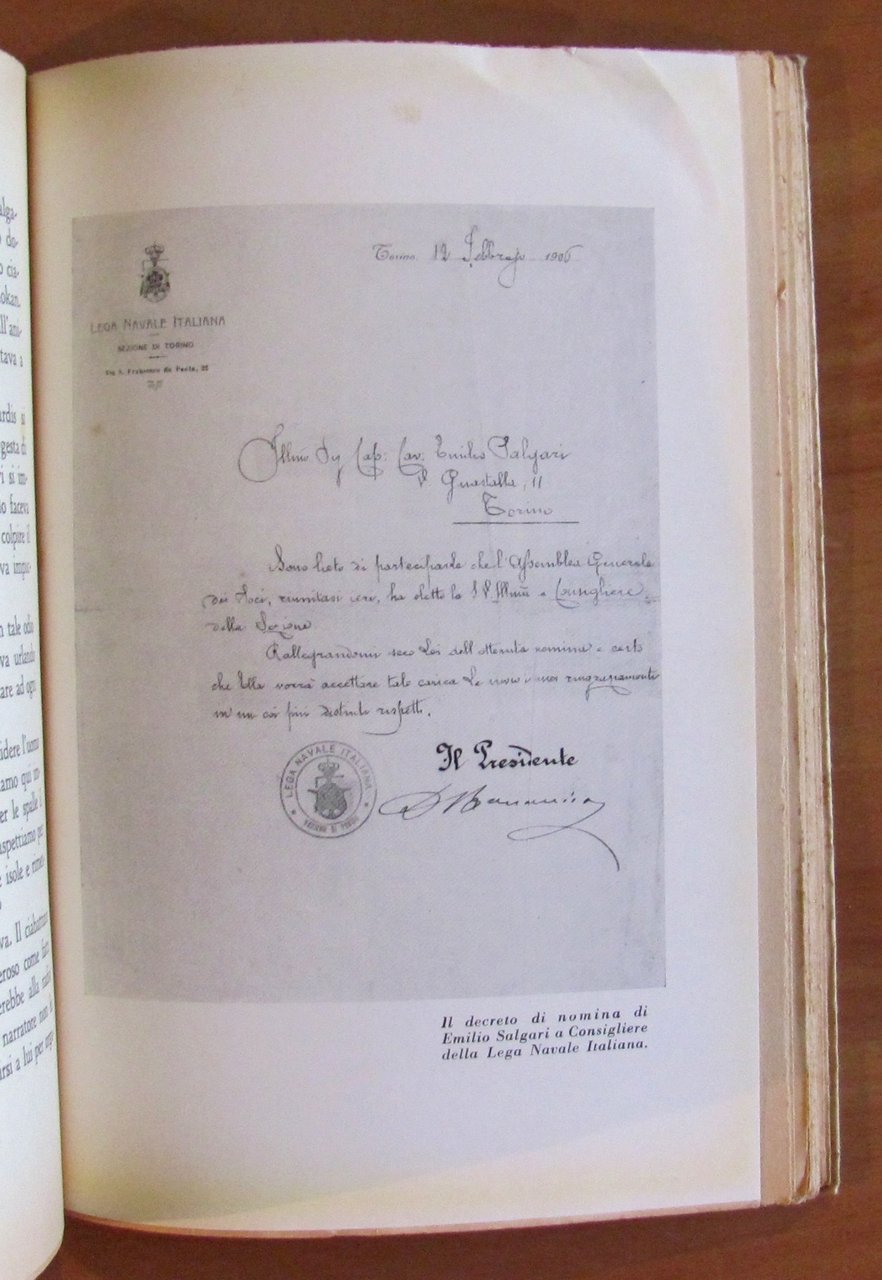 alga-
do-
cia-
okan.
ll'ani-
tava a
ardis si
gesta di
ri si im-
io faceva
colpire il
va impu-
n tale odio
va urlando
are ad ogni
idere l'uomo
iamo qui in-
per le spalle il
aspettiamo per
e isole e
va. Il ciabattino
eroso come
erebbe alla
narratore non
irsi a lui per
LEGA NAVALE ITALIANA
SEZIONE DI TORINO
Via S. Francesco da Paola, 22
Torino, 12 Febbraio 1906
Illmo Sig Cap: Cav: Emilio Salgari
V. Guastalla, 11
Torino
Sono lieto di parteciparle che l'Assemblea Generale
dei Soci, riunitasi ieri, ha eletto la S.V. Illma a Consigliere
della Sezione.
Rallegrandomi seco Lei dell'ottenuta nomina e certo
che Ella vorrà accettare tale carica Le invio i miei ringraziamenti
in un coi più distinti rispetti.
Il Presidente
LEGA NAVALE ITALIANA
SEZIONE DI TORINO
Il decreto di nomina di
Emilio Salgari a Consigliere
della Lega Navale Italiana.